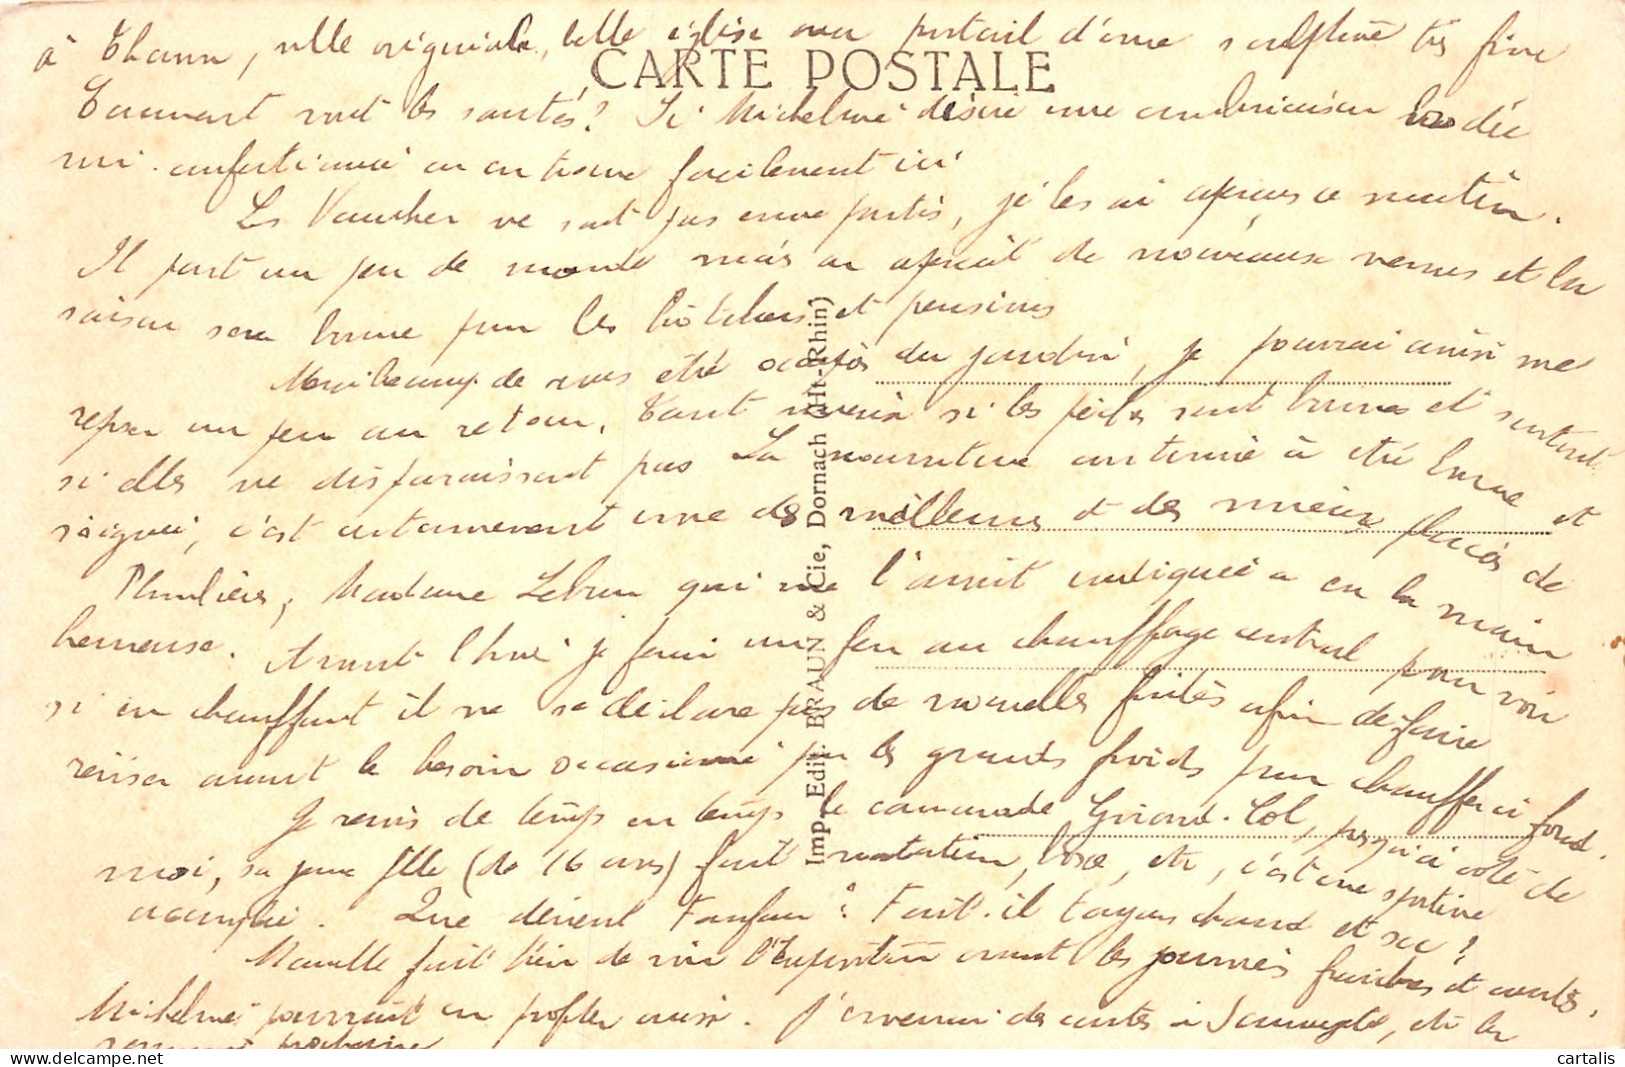 à Thann, ville originale, belle église avec portail d'une sculpture très fine
CARTE POSTALE
Comment vont les santés? Si Micheline désire une combinaison
mi-confectionnée on en trouve facilement ici
Les Vaucher ne sont pas encore partis, je les ai aperçus ce matin.
Il part un peu de monde mais on aperçoit de nouveaux venus et la
saison sera bonne pour les hôteliers et pensions
Merci beaucoup de vous être occupés du jardin, je pourrai ainsi me
reposer un peu au retour. Tant mieux si les pêches sont bonnes et surtout
si elles ne disparaissent pas La nourriture continue à être bonne et
soignée, c'est certainement une des meilleures et des mieux placées de
Plombières, Madame Lebrun qui me l'avait indiquée a eu la main
heureuse. Avant l'hiver je ferai un feu au chauffage central pour voir
si en chauffant il ne se déclare pas de nouvelles fuites afin de faire
réviser avant le besoin occasionné par les grands froids pour chauffer à fond.
Je revois de temps en temps le camarade Girard-Col, jusqu'ici côté de
moi, sa jeune fille (de 16 ans) fait natation, boxe, etc, c'est une sportive
accomplie. Que devient Fanfan? Fait-il toujours chaud et sec?
Marcelle fait bien de voir l'Exposition avant les journées fraîches et courtes,
Micheline pourrait en profiter aussi. J'enverrai des cartes à et les
prochaine
Imp. Edit. BRAUN & Cie, Dornach (Ht-Rhin)
cartalis